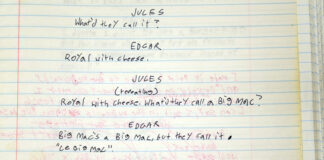 JULES
What'd they call it?
EDGAR
Royal with cheese.
JULES
(repeating)
Royal with cheese. What'd they call a Big Mac?
EDGAR
Big Mac's a Big Mac, but they call it
"Le Big Mac".